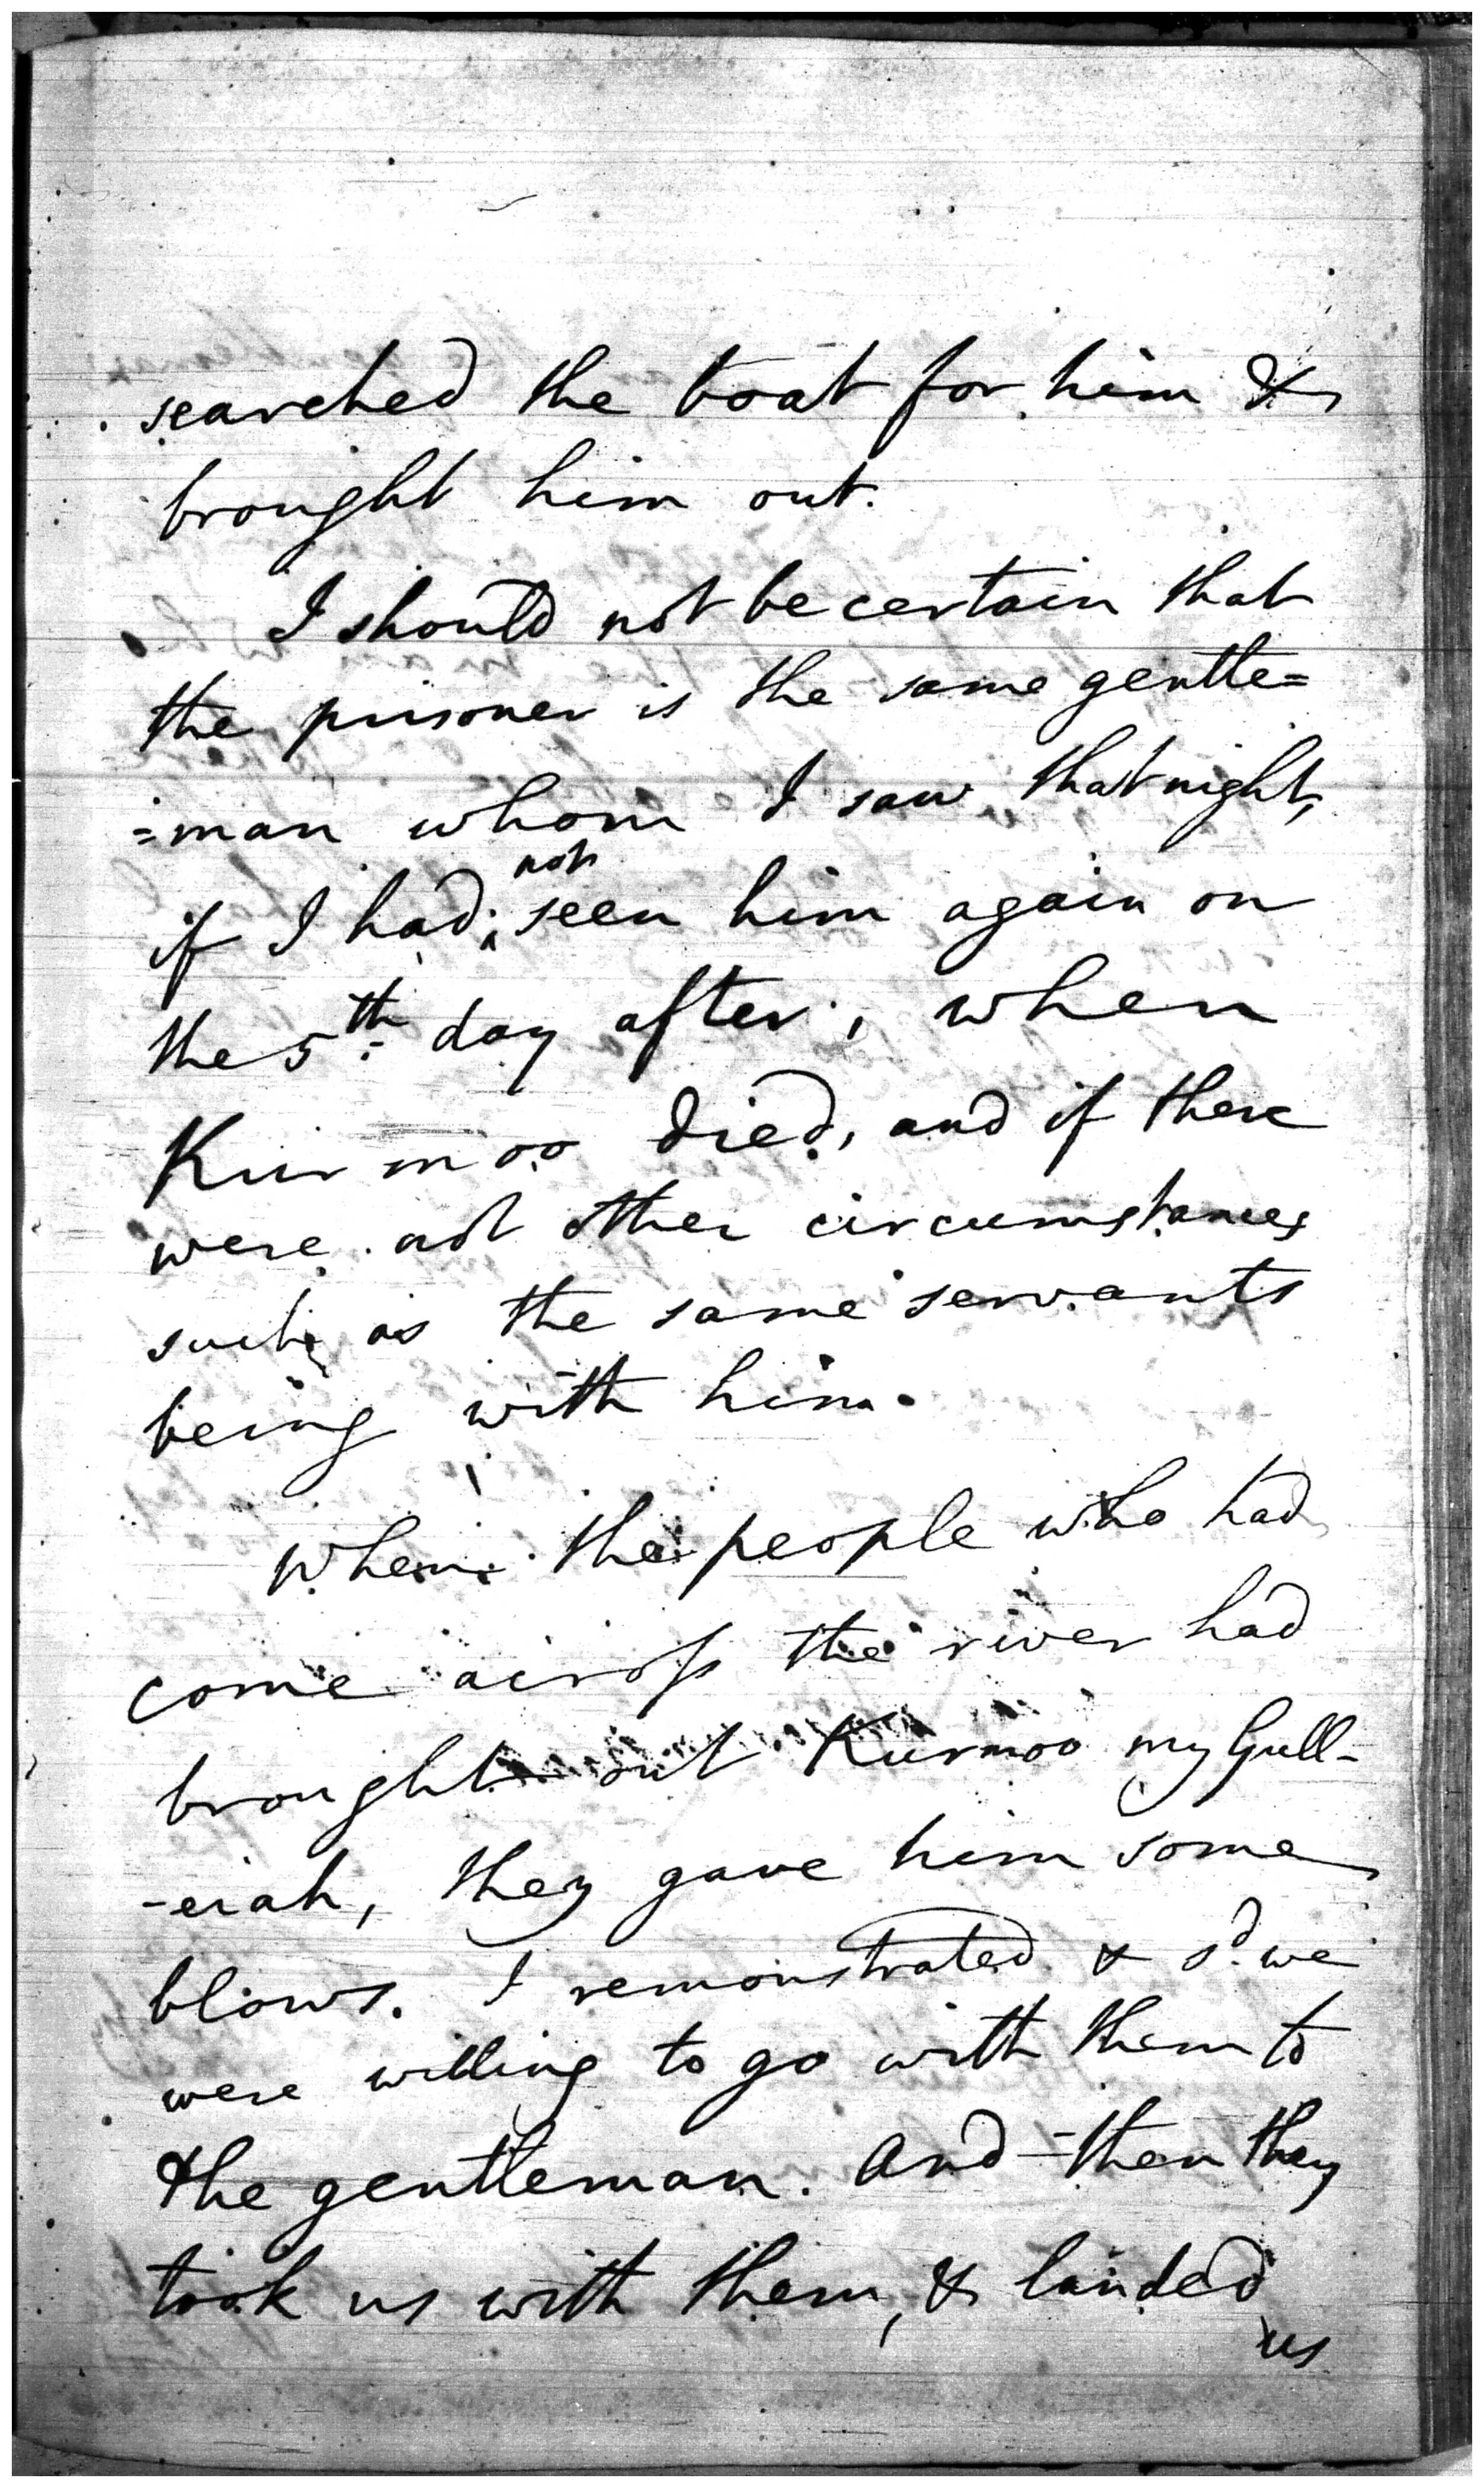 searched the boat for him &
brought him out.
I should not be certain that
the prisoner is the same gentle=
=man whom I saw that night,
if I had not seen him again on
the 5th day after, when
Kurmoo died, and if there
were not other circumstances
such as the same servants
being with him.
When the people who had
come across the river had
brought out Kurmoo my Gull-
-eiah, they gave him some
blows. I remonstrated & sd. we
were willing to go with them to
the gentleman. And then they
took us with them, & landed
us